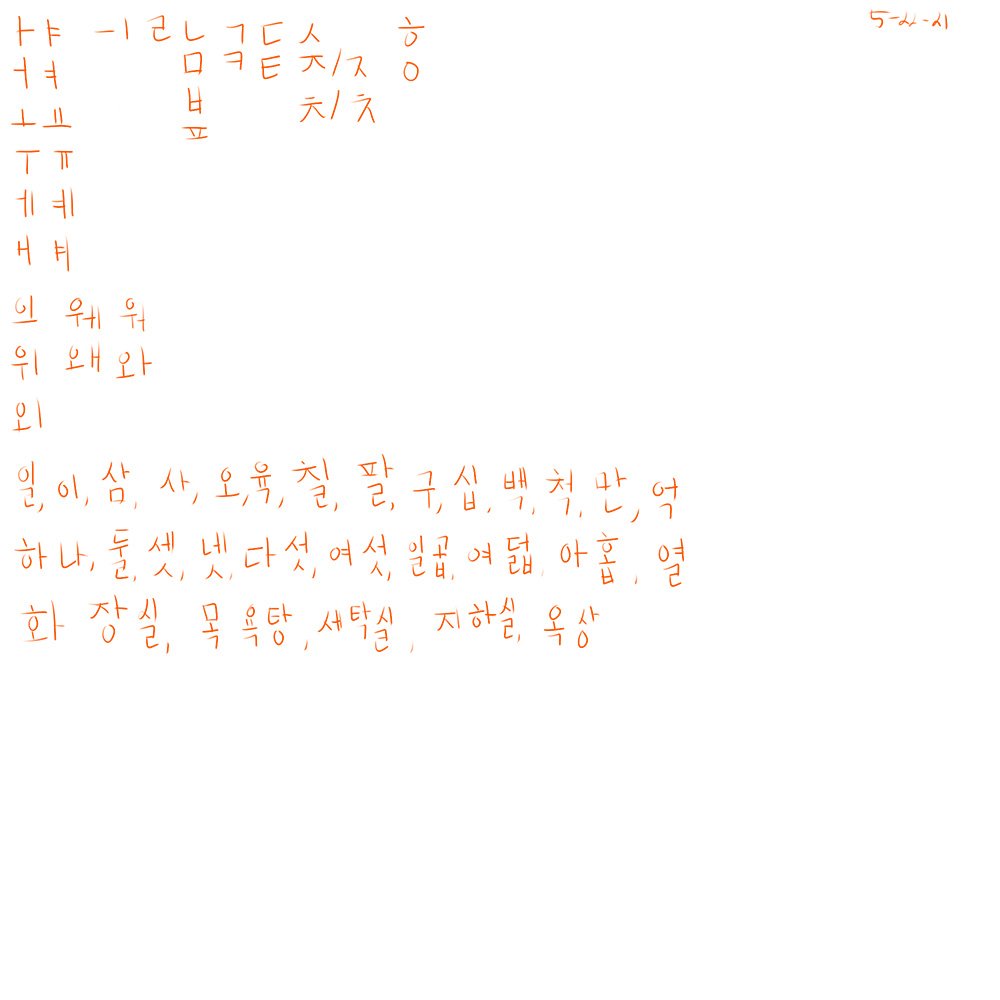 ㅏ ㅑ ㅡ ㅣ ㄹ ㄴ ㄱ ㄷ ㅅ ㅎ 5-22-21
ㅓ ㅕ ㅁ ㅋ ㅌ ㅈ/ㅈ ㅇ
ㅗ ㅛ ㅂ ㅊ/ㅊ
ㅍ
ㅜ ㅠ
ㅔ ㅖ
ㅐ ㅒ
의 웨 워
위 왜 와
외
일, 이, 삼, 사, 오, 육, 칠, 팔, 구, 십, 백, 척, 만, 억
하나, 둘, 셋, 넷, 다섯, 여섯, 일곱, 여덟, 아홉, 열
화장실, 목욕탕, 세탁실, 지하실, 옥상